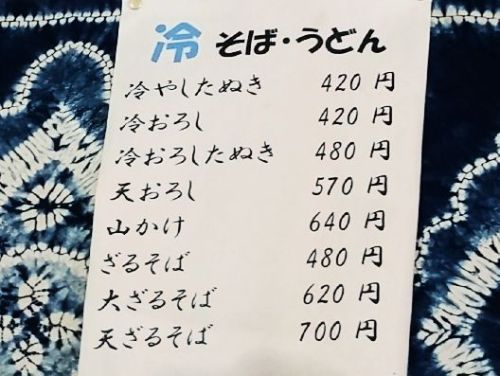 冷 そば・うどん
冷やしたぬき 420 円
冷おろし 420 円
冷おろしたぬき 480 円
天おろし 570 円
山かけ 640 円
ざるそば 480 円
大ざるそば 620 円
天ざるそば 700 円